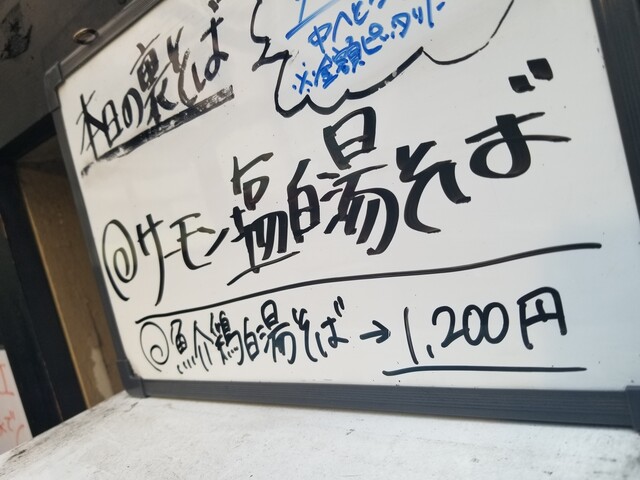 本日の裏そば
中へどう
※金額ピッタリで
◎サーモン塩白湯そば
◎魚介鶏白湯そば→1,200円